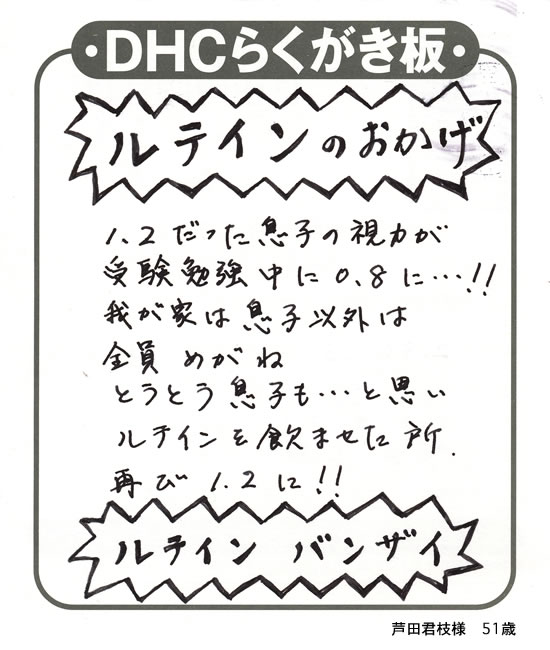 ・DHCらくがき板・
ルテインのおかげ
1.2だった息子の視力が
受験勉強中に0.8に…!!
我が家は息子以外は
全員めがね
とうとう息子も…と思い
ルテインを飲ませた所、
再び1.2に!!
ルテイン バンザイ
芦田君枝様 51歳